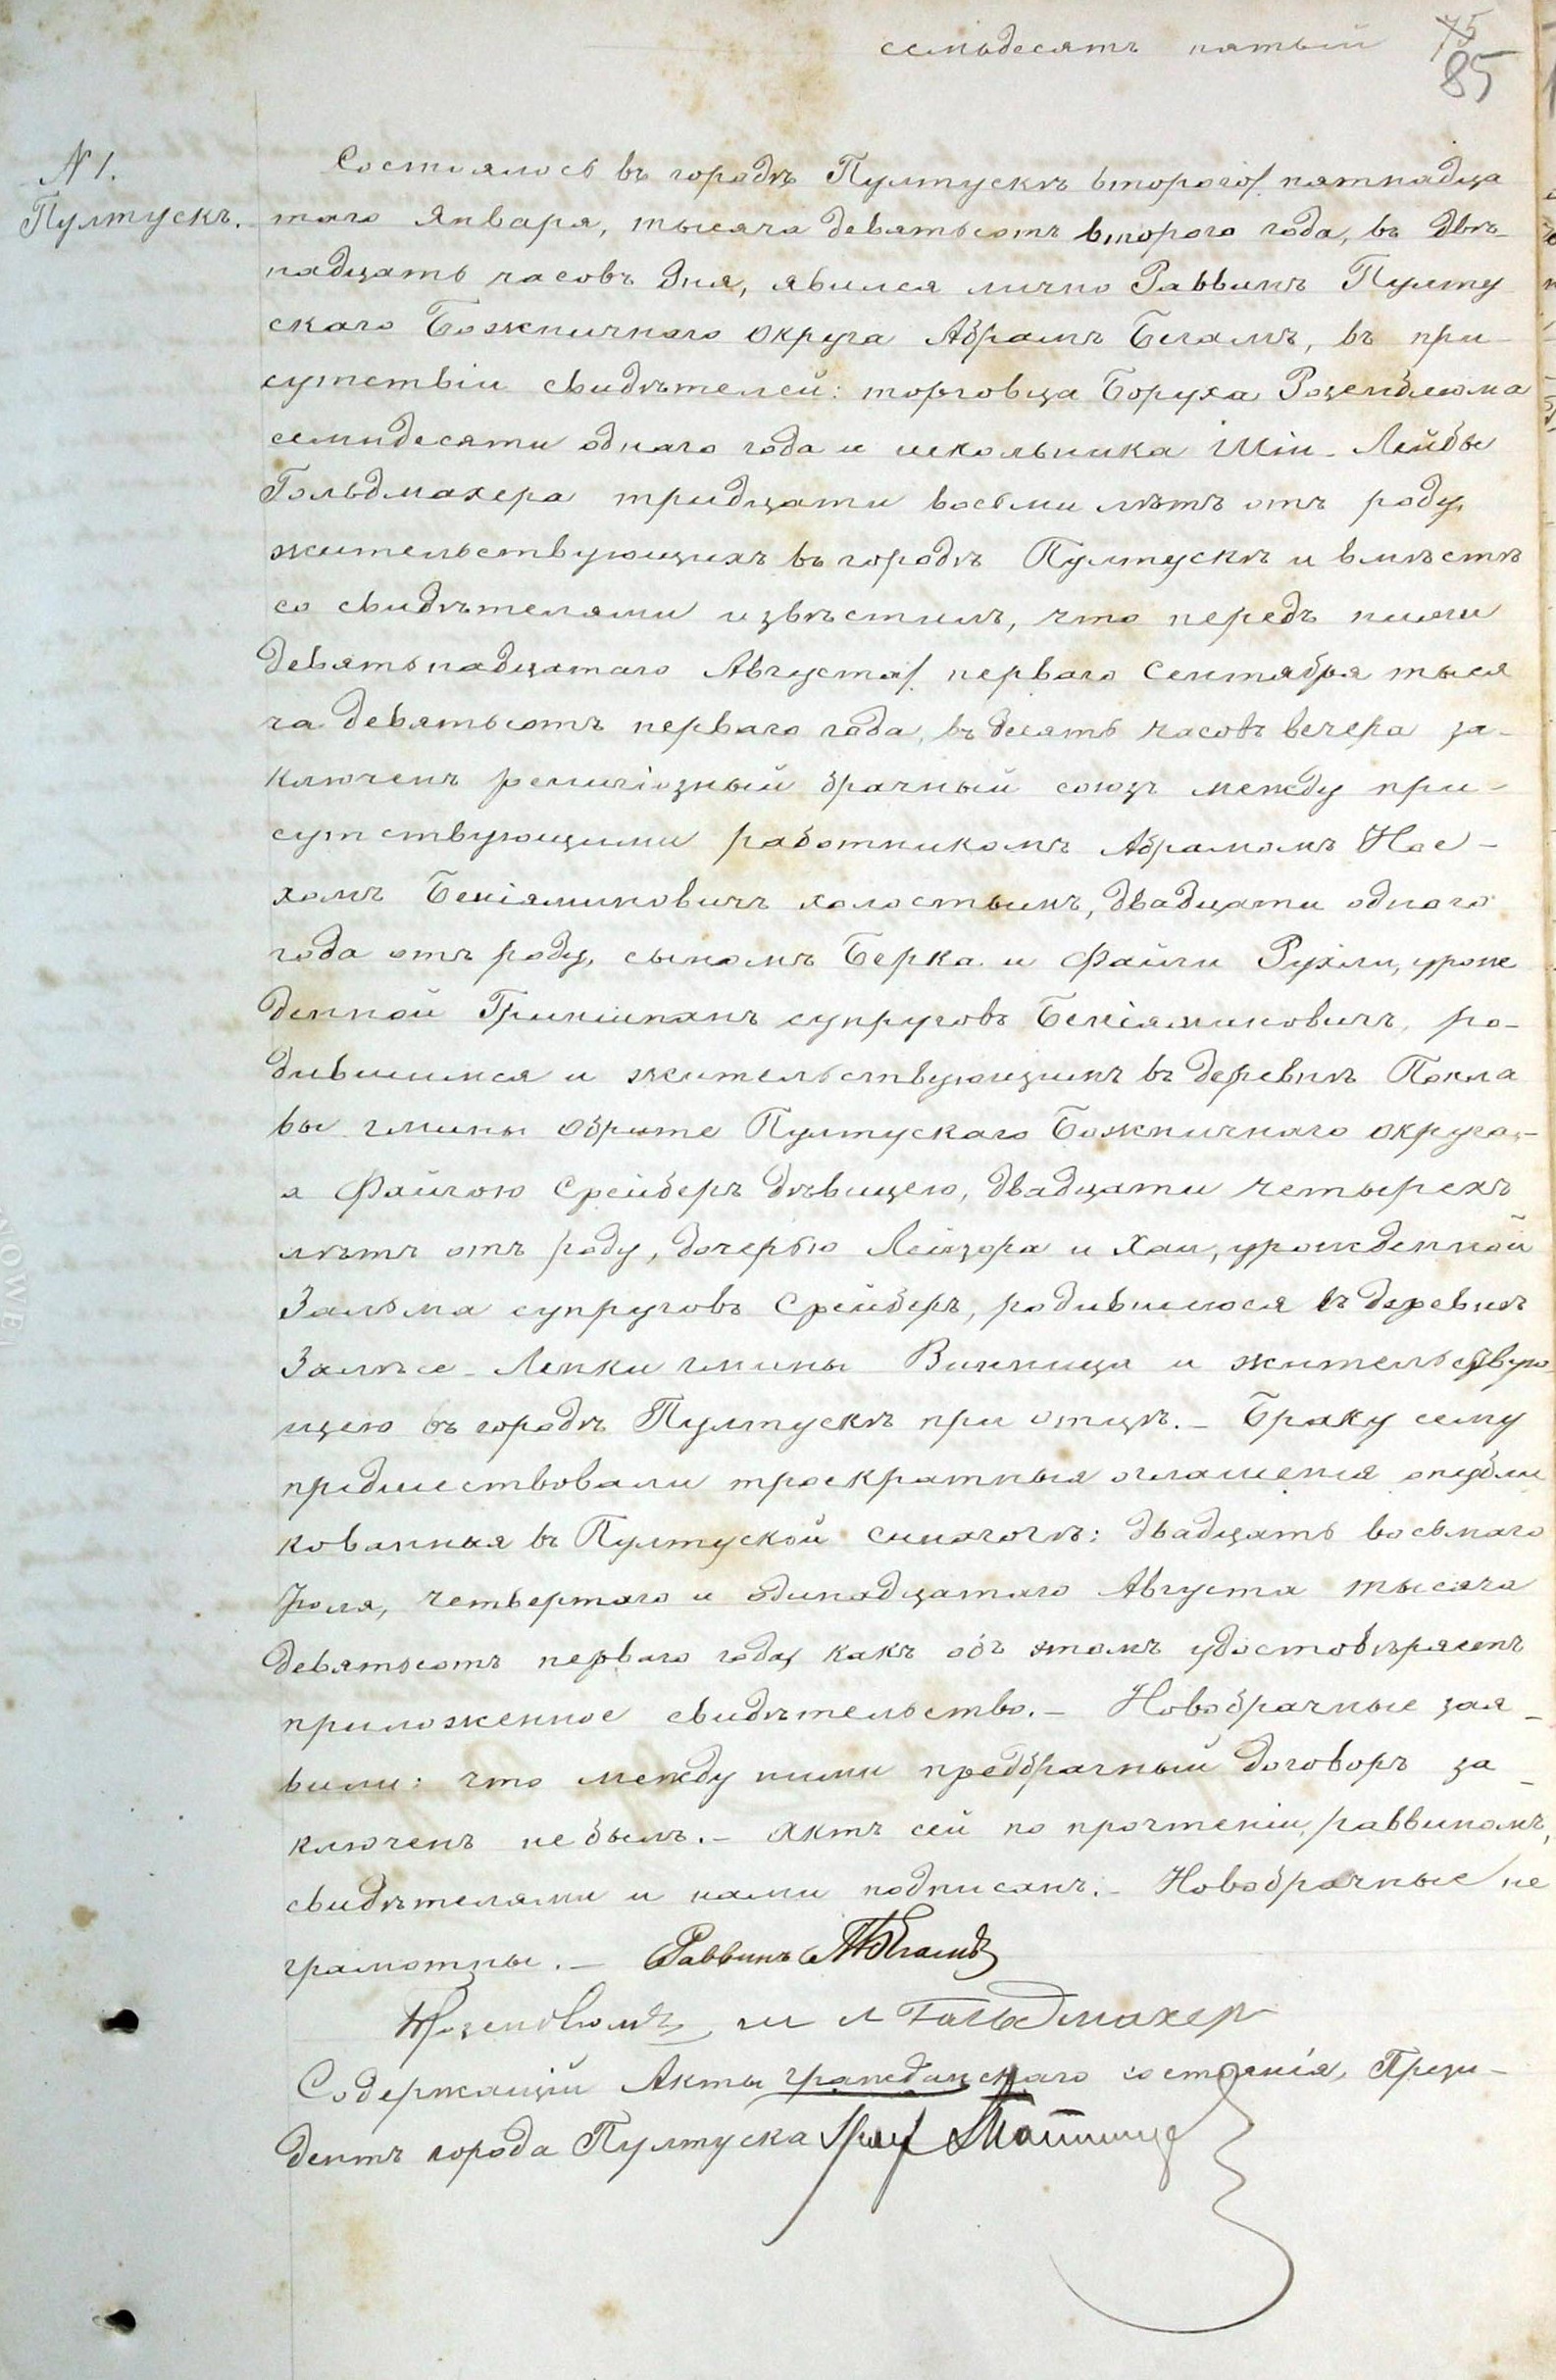 семьдесятъ пятый 75
85
N 1.
Пултускъ.
Состоялось въ городѣ Пултускѣ второго/ пятнадца
таго Января, тысяча девятьсотъ второго года, въ двѣ-
надцать часовъ дня, явился лично Раввинъ Пулту
скаго Божничнаго округа Абрамъ Бегамъ, въ при-
сутствіи свидѣтелей: торговца Боруха Розенблюма
семидесяти одного года и школьника Шіи-Лейбы
Гольдмахера тридцати восьми лѣтъ отъ роду,
жительствующихъ въ городѣ Пултускѣ и вмѣстѣ
со свидѣтелями извѣстилъ, что передъ ними
девятьнадцатаго Августа/ перваго Сентября тыся
ча девятьсотъ перваго года, въ десять часовъ вечера за-
ключенъ религіозный брачный союзъ между при-
сутствующими работникомъ Абрамомъ Ное-
хомъ Беніяминовичъ холостымъ, двадцати одного
года отъ роду, сыномъ Берка и Файги Рухли, урож
денной Гриншпанъ супруговъ Беніяминовичъ, ро-
дившимся и жительствующимъ въ деревнѣ Покла
вы гмины Обрыте Пултускаго Божничнаго округа,-
а Файгою Срейберъ дѣвицею, двадцати четырехъ
лѣтъ отъ роду, дочерью Лейзора и Хаи, урожденной
Зальма супруговъ Срейберъ, родившеюся въ деревнѣ
Залѣсе-Ленки гмины Винница и жительствую
щею въ городѣ Пултускѣ при отцѣ.- Браку сему
предшествовали троекратныя оглашенія опубли
кованныя въ Пултуской синагогѣ: двадцать восьмаго
Іюля, четвертаго и одинадцатаго Августа тысяча
девятьсотъ перваго года, какъ объ этомъ удостовѣряетъ
приложенное свидѣтельство.- Новобрачные зая-
вили: что между ними предбрачный договоръ за-
ключенъ не былъ.- Актъ сей по прочтеніи, раввиномъ,
свидѣтелями и нами подписанъ.- Новобрачные не
грамотны.- Раввинъ А Бегамъ
Розенблюмъ, ш л Гальдмахер
Содержащій Акты гражданскаго состоянія, Прези-
дентъ города Пултуска